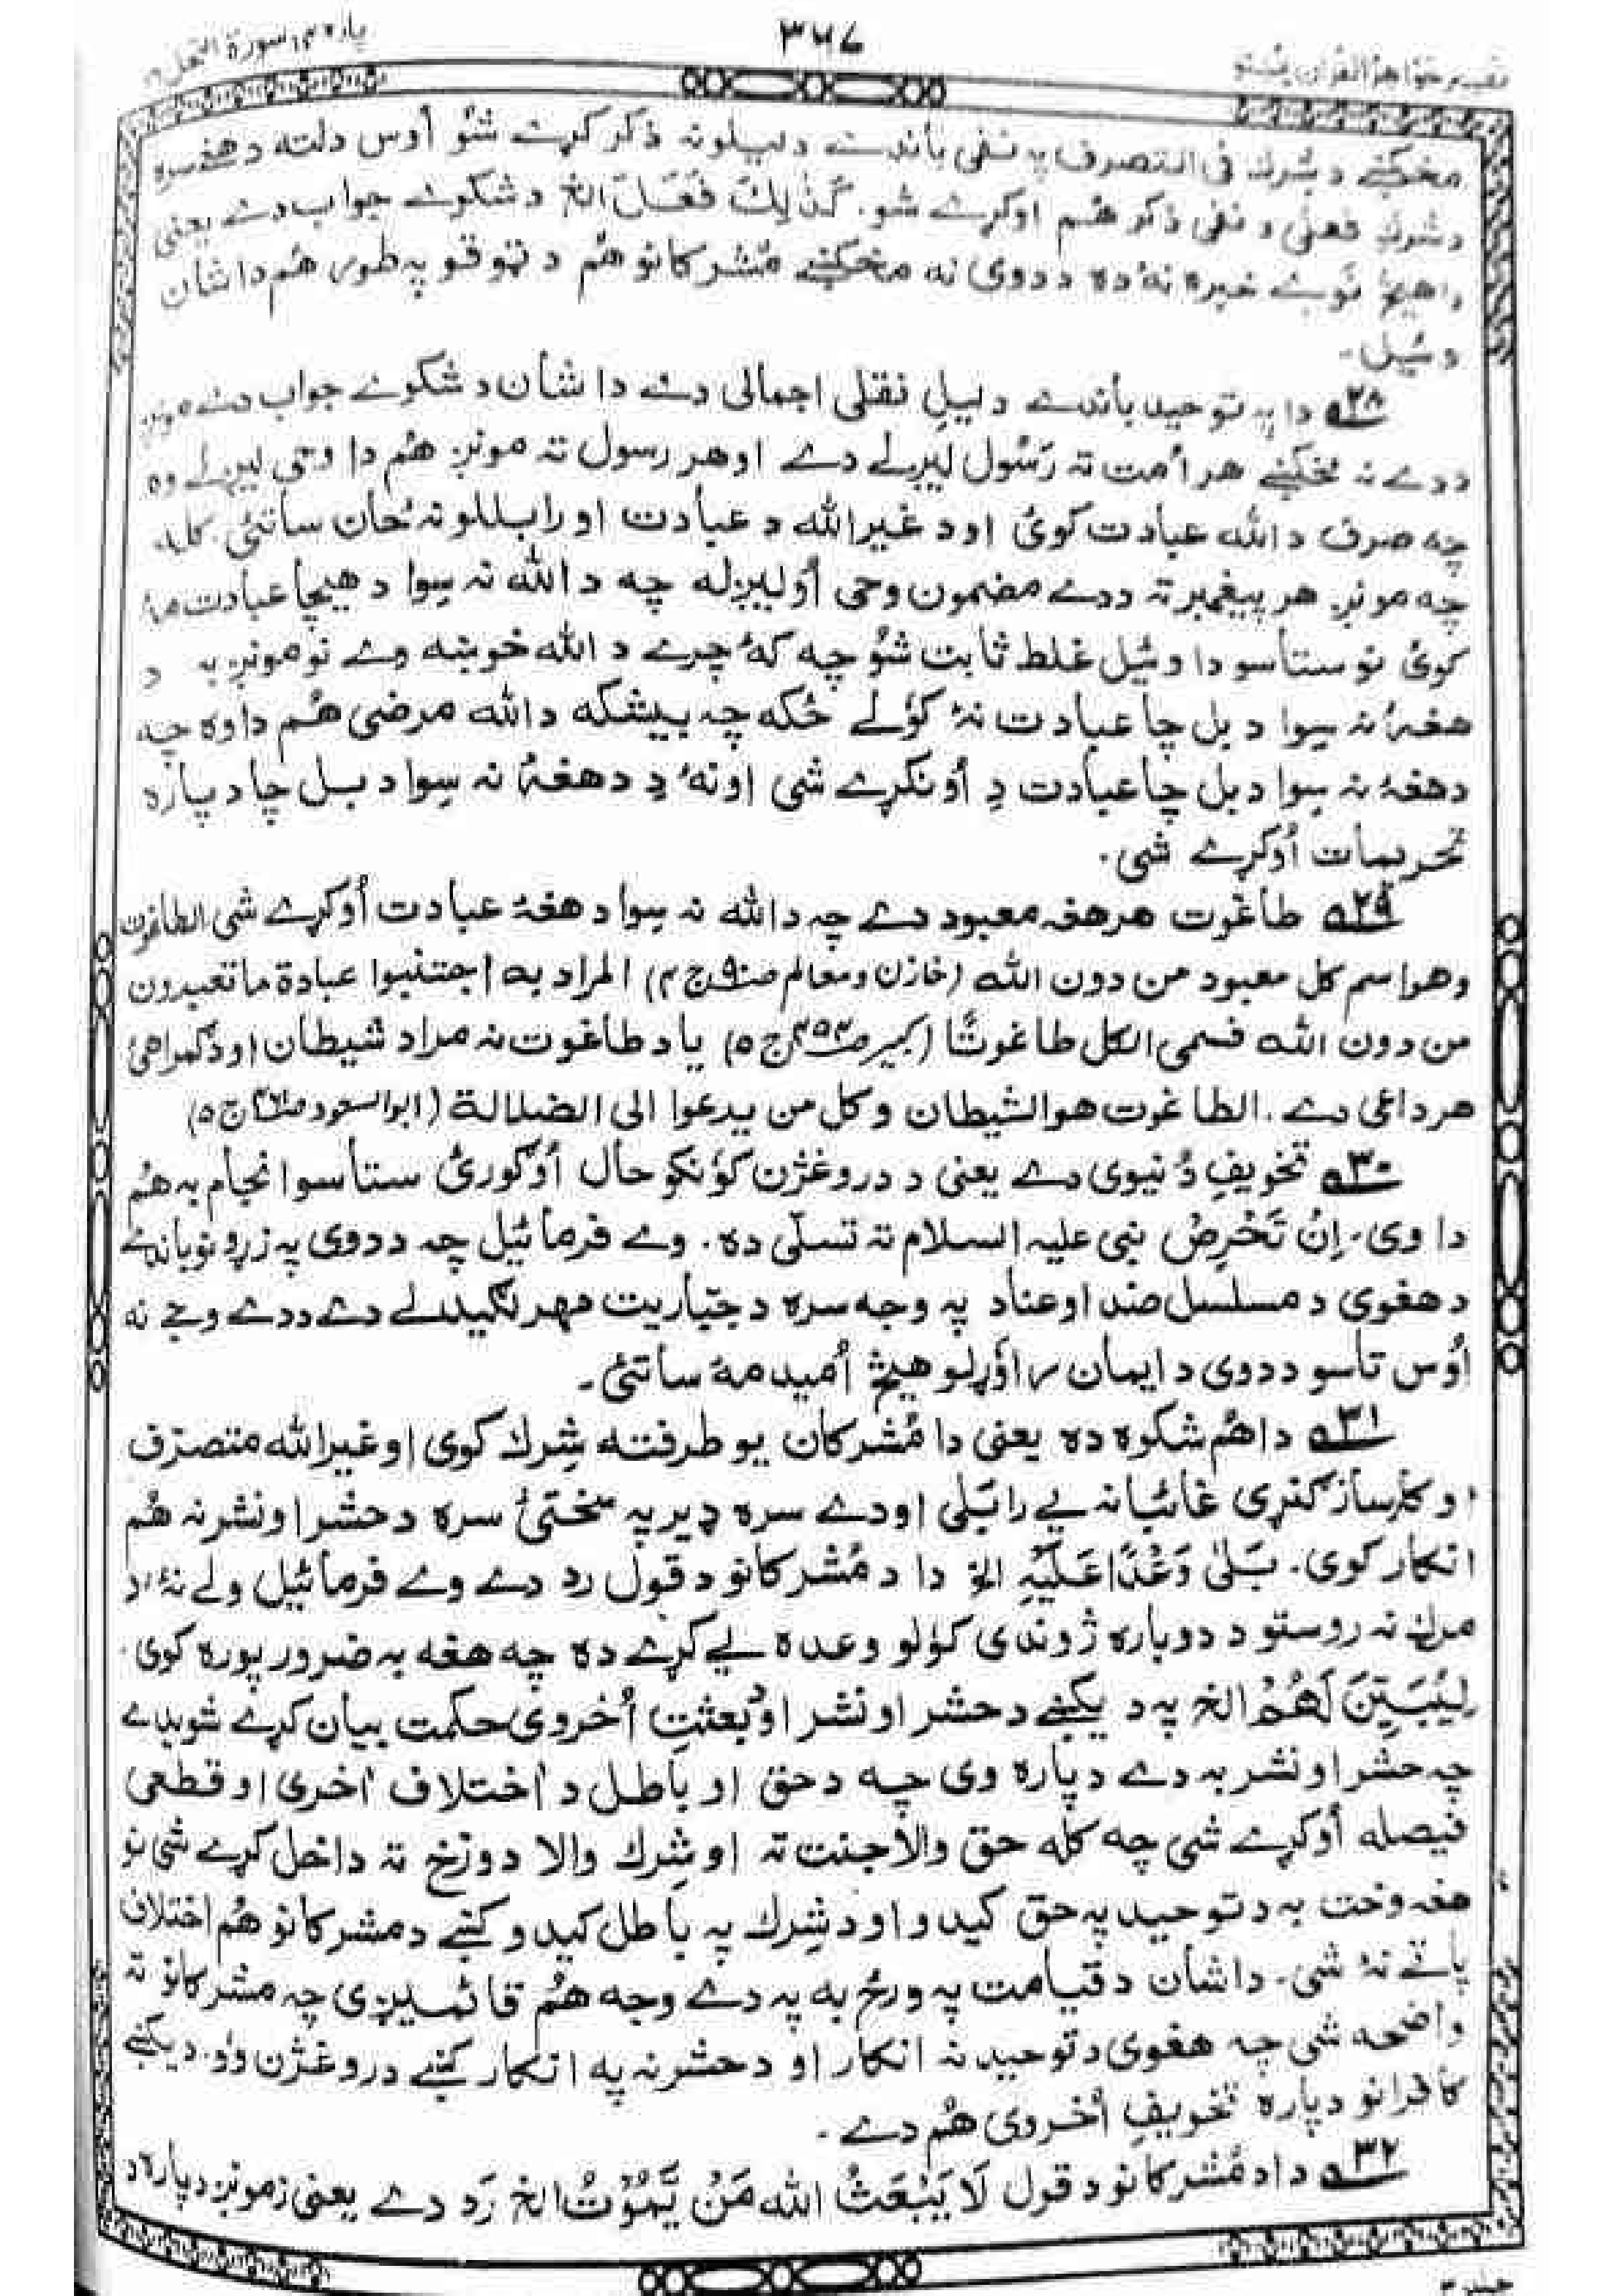 تفسیر جواهر القرآن پښتو
۳۶۷
پاره ۱۴، سورة النحل ۱۶
مخکښے د شرك فی التصرف په نفی باندے دلیلونه ذکر کړے شو أوس دلته د هغے سره
د شرك فعلی د نفی ذکر هُم اوکړے شو. كَذٰلِكَ فَعَلَ الخ د شکوے جواب دے یعنی
دا هیڅ نوے خبره نهٔ ده د دوی نه مخکښے مُشرکانو هُم د ټوقو په طور هُم دا شان
وئیل۔
۲۸ه دا په توحید باندے دلیلِ نقلی اجمالی دے دا شان د شکوے جواب دے مونږ
ددے نہ مخکښے هر اُمت تہ رَسُول لیږلے دے اوهر رسول تہ مونږ هُم دا وحی لیږلے وه
چه صرف د الله عبادت کوئ اود غیرالله د عبادت اورابللو نہ ځان ساتئ. کله
چه مونږ هر پیغمبر تہ ددے مضمون وحی أولیږله چه د الله نہ سِوا د هیچا عبادت مهٔ
کوئ نو ستاسو دا وئیل غلط ثابت شو چه کهٔ چرے د الله خوښه وے نو مونږ به د
هغهٔ نہ سِوا د بل چا عبادت نهٔ کؤلے ځکه چہ بیشکه د الله مرضی هُم دا وه چه
دهغهٔ نہ سِوا د بل چا عبادت دِ أونکړے شی اونهٔ دِ د هغهٔ نہ سِوا د بل چا دپاره
تحریمات اُوکړے شی.
۲۹ه طاغوت هرهغه معبود دے چہ د الله نہ سِوا د هغهٔ عبادت أوکړے شی الطاغوت
وهو اسم کل معبود من دون الله (خازن ومعالم ص۹۰ ج۴) المراد به اجتنبوا عبادة ما تعبدون
من دون الله فسمی الکل طاغوتًا (کبیر ص۴۵۳ ج۵) یا د طاغوت نہ مراد شیطان او د گمراهئ
هر داعی دے. الطاغوت هو الشیطان وکل من یدعوا الی الضلالة (ابو السعود ص۴۶۱ ج۵)
۳۰ه تخویفِ دُنیوی دے یعنی د دروغژن کؤنکو حال أوگورئ ستاسو انجام به هُم
دا وی۔ اِنْ تَحْرِصْ نبی علیہ السلام تہ تسلّی ده. وے فرمائیل چہ د دوی په زړونو باندے
د هغوی د مسلسل ضد او عناد په وجه سره د جبّاریت مهر لگیدلے دے ددے وجے نه
أوس تاسو د دوی د ایمان راؤړلو هیڅ اُمید مهٔ ساتئ۔
۳۱ه دا هُم شکوه ده یعنی دا مُشرکان یو طرفته شِرك کوی او غیرالله متصرّف
او کارساز گنړی غائبانہ یے رابَلی اودے سره ډیر په سختئ سره د حشر اونشر نہ هُم
انکار کوی. بَلٰی وَعْدًا عَلَيْهِ الخ دا د مُشرکانو د قول رد دے وے فرمائیل ولے نهٔ! د
مرگ نه روستو د دوباره ژوندی کؤلو وعده یے کړے ده چه هغه به ضرور پوره کوی.
لِيُبَيِّنَ لَهُمُ الخ په دیکښے د حشر اونشر او بعثتِ اُخروی حکمت بیان کړے شویدے
چہ حشر اونشر به دے دپاره وی چه د حق او باطل د اختلاف آخری او قطعی
فیصله أوکړے شی چه کله حق والا جنت تہ اوشِرك والا دوزخ تہ داخل کړے شی نو
هغه وخت به د توحید په حق کیدو او د شِرك په باطل کیدو کښے د مشرکانو هُم اختلاف
پاتے نهٔ شی. دا شان د قیامت په ورځ به په دے وجه هُم قائمیږی چه مشرکانو تہ
واضحه شی چه هغوی د توحید نہ انکار او د حشر نہ په انکار کښے دروغژن وُو. دیکښے
کافرانو دپاره تخویفِ اُخروی هُم دے۔
۳۲ه دا د مُشرکانو د قول لَا يَبْعَثُ الله مَنْ يَّمُوْتُ الخ رَد دے یعنی زمونږ دپاره د
جلد ۳